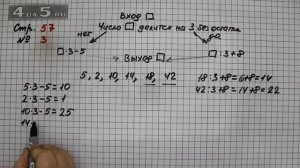 4 a 5.ru
Стр. 57
№ 3
Вход □
Число □ делится на 3 без остатка
нет
да
□·3-5
Выход □
□:3+8
5, 2, 10, 14, 18, 42
5·3-5=10
2·3-5=1
10·3-5=25
14
18:3+8=6+8=14
42:3+8=14+8=22